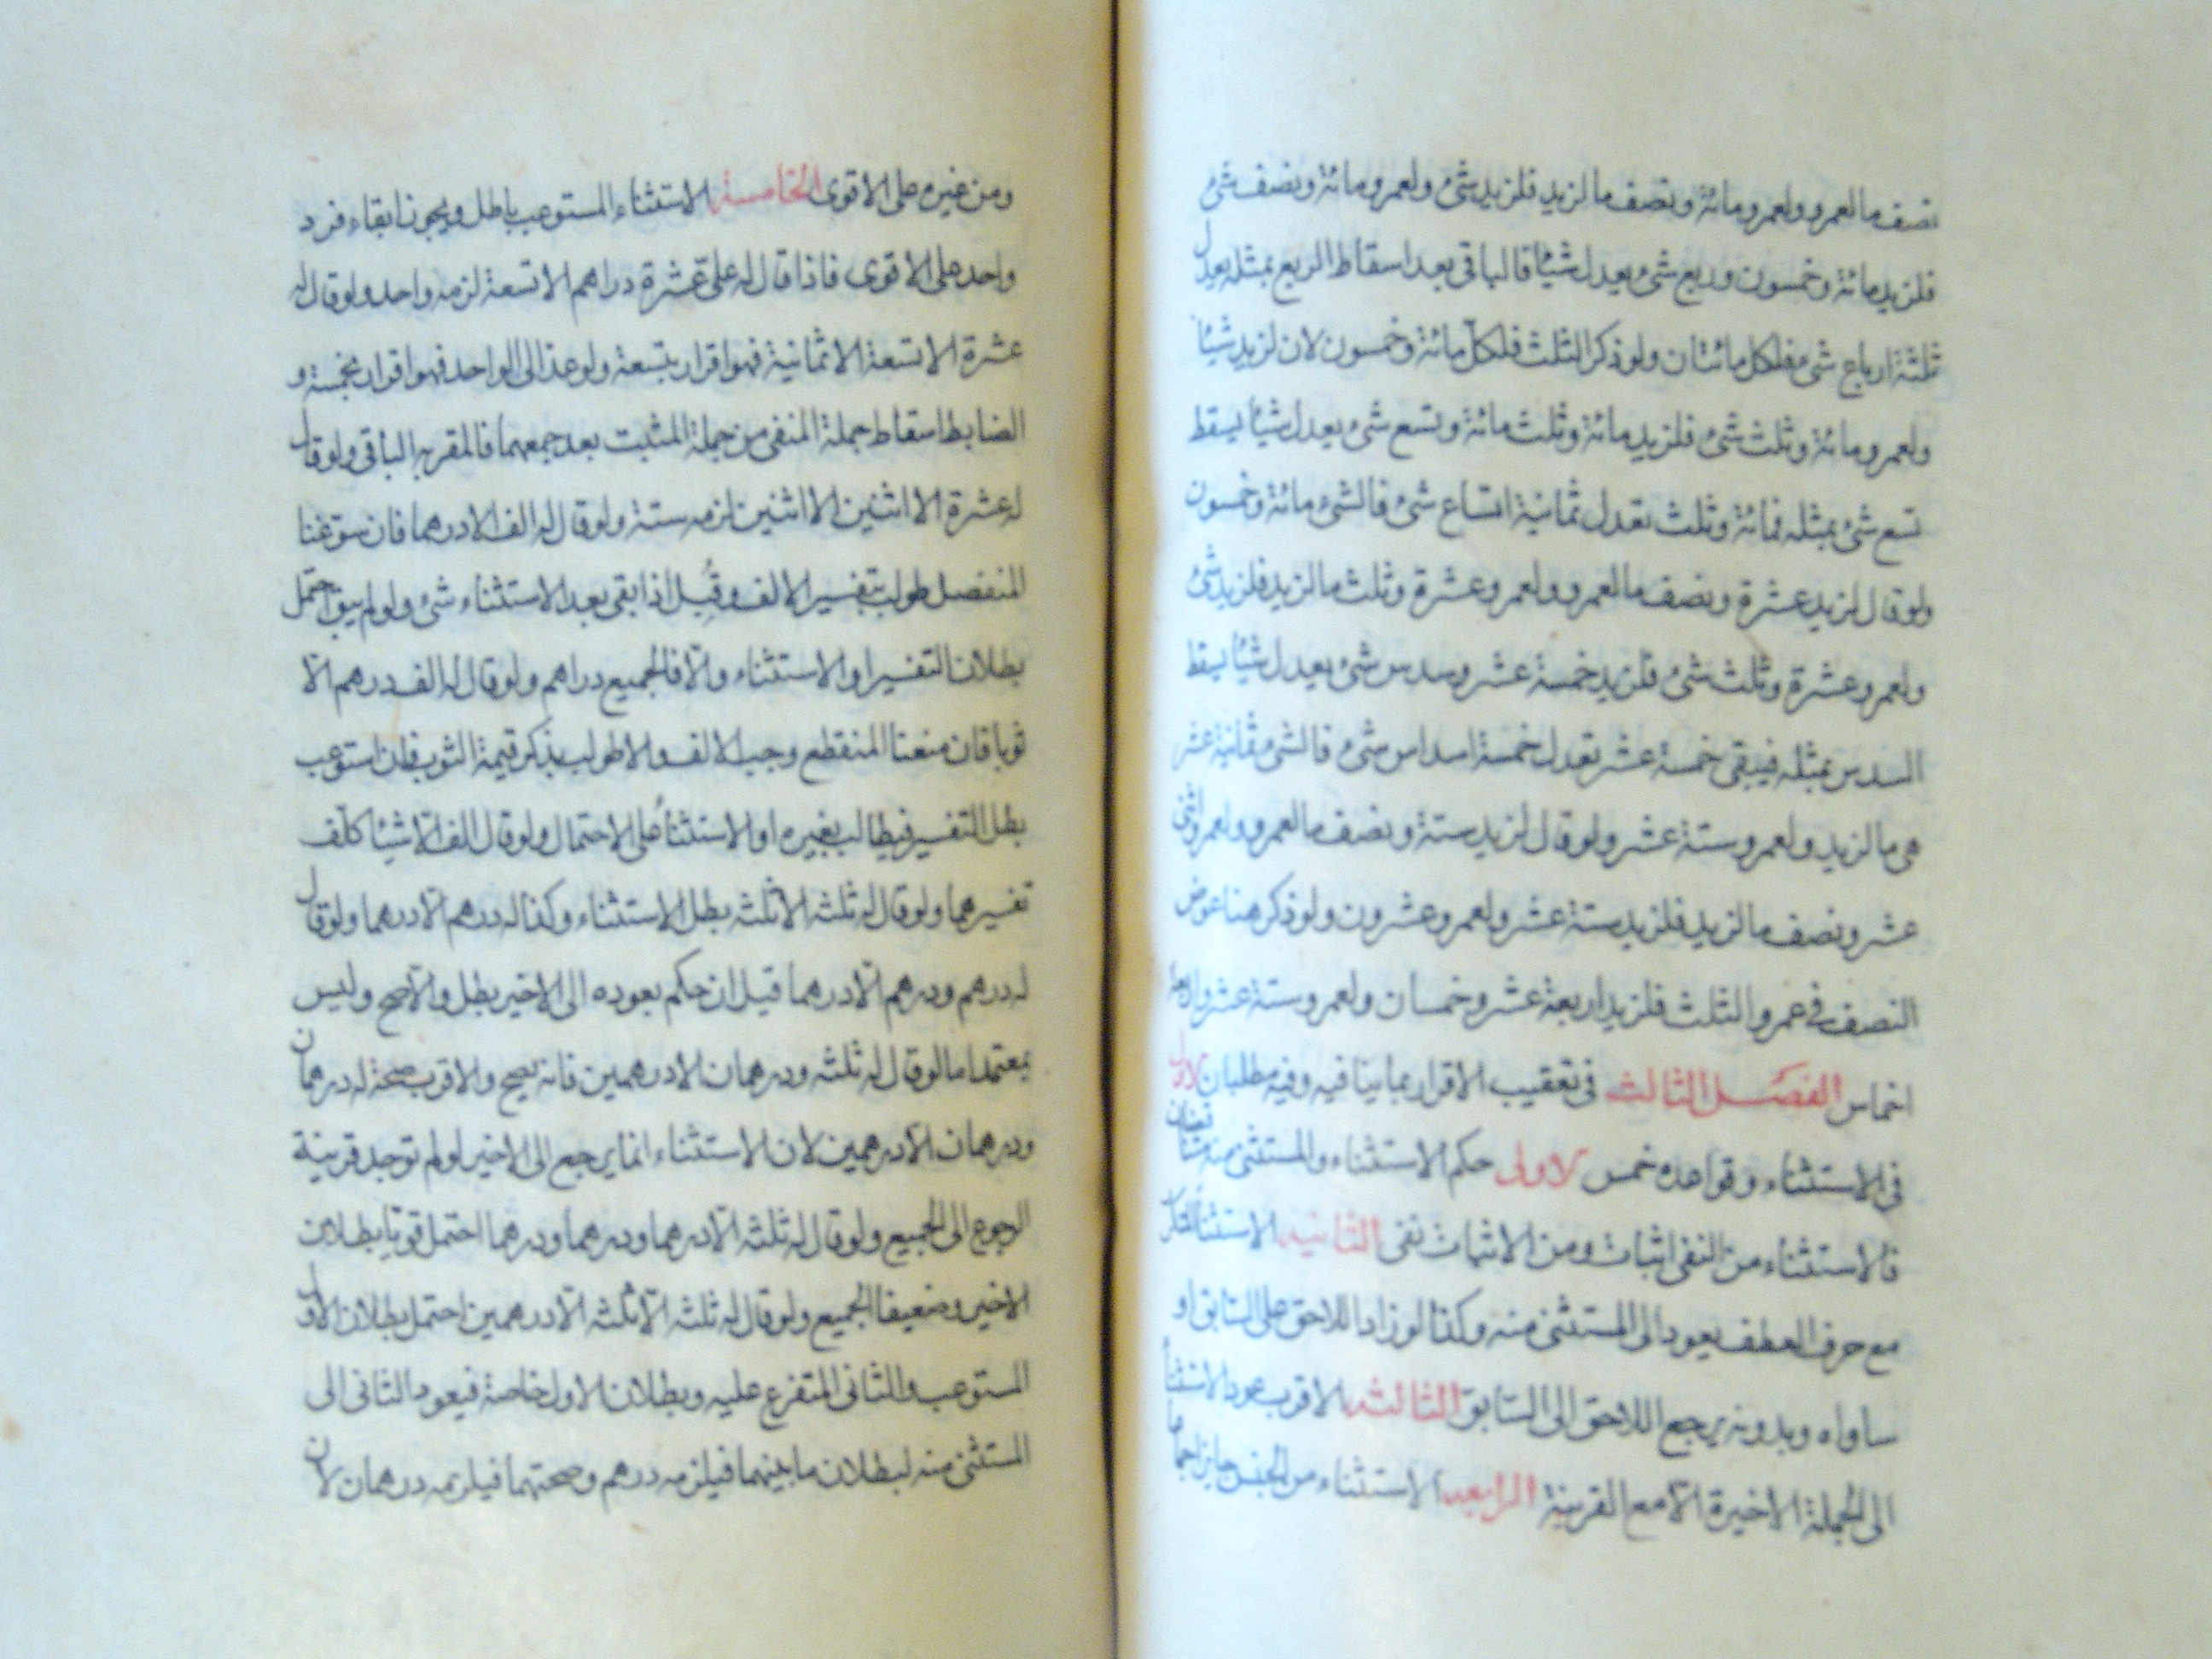 نصف ما لعمرو ولعمرو مائة ونصف ما لزيد فلزيد شئ ولعمرو مائة ونصف شئ
فلزيد مائة وخمسون وربع شئ يعدل شيئا فالباقي بعد اسقاط الربع بمثله يعدل
ثلثة ارباع شئ فلكل مائتان ولو ذكر الثلث فلكل مائة وخمسون لان لزيد شيئا
ولعمرو مائة وثلث شئ فلزيد مائة وثلث مائة وتسع شئ يعدل شيئا يسقط
تسع شئ بمثله فمائة وثلث تعدل ثمانية اتساع شئ فالشئ مائة وخمسون
ولو قال لزيد عشرة ونصف ما لعمرو ولعمرو عشرة وثلث ما لزيد فلزيد شئ
ولعمرو عشرة وثلث شئ فلزيد خمسة عشر وسدس شئ يعدل شيئا يسقط
السدس بمثله فيبقى خمسة عشر تعدل خمسة اسداس شئ فالشئ ثمانية عشر
هي ما لزيد ولعمرو ستة عشر ولو قال لزيد ستة ونصف ما لعمرو ولعمرو اثني
عشر ونصف ما لزيد فلزيد ستة عشر ولعمرو عشرون ولو ذكر هنا عوض
النصف في عمرو الثلث فلزيد اربعة عشر وخمسان ولعمرو ستة عشر واربعة
اخماس الفصل الثالث في تعقيب الاقرار بما ينافيه وفيه مطلبان الاول
في الاستثناء وقواعده خمس الاولى حكم الاستثناء والمستثنى منه متناقضان
فالاستثناء من النفي اثبات ومن الاثبات نفي الثانية الاستثناء المتكرر
مع حرف العطف يعود الى المستثنى منه وكذا لو زاد اللاحق على السابق او
ساواه وبدونه يرجع اللاحق الى السابق الثالثة الاقرب عود الاستثناء
الى الجملة الاخيرة الا مع القرينة الرابعة الاستثناء من الجنس جايز اجماعا
ومن غيره على الاقوى الخامسة الاستثناء المستوعب باطل ويجوز ابقاء فرد
واحد على الاقوى فاذا قال له علي عشرة دراهم الا تسعة لزمه واحد ولو قال له
عشرة الا تسعة الا ثمانية فهو اقرار بتسعة ولو عد الى الواحد فهو اقرار بخمسة و
الضابط اسقاط جملة المنفي من جملة المثبت بعد جمعهما فالمقر به الباقي ولو قال
له عشرة الا اثنين الا اثنين لزمه ستة ولو قال له الف الا درهما فان سوغنا
المنفصل طولب بتفسير الالف وقبل اذا بقى بعد الاستثناء شئ ولو لم يبق احتمل
بطلان التفسير او الاستثناء والا فالجميع دراهم ولو قال له الف درهم الا
ثوبا فان منعنا المنقطع وجب الالف والا طولب بذكر قيمة الثوب فان استوعب
بطل التفسير فيطالب بغيره او الاستثناء على الاحتمال ولو قال الف الا شيئا كلف
تفسيرهما ولو قال له ثلثه الا ثلثه بطل الاستثناء وكذا له درهم الا درهما ولو قال
له درهم ودرهم الا درهما قيل ان حكم بعوده الى الاخير بطل والا صح وليس
بمعتمد اما لو قال له ثلثه ودرهمان الا درهمين فانه يصح والاقرب صحة له درهمان
ودرهمان الا درهمين لان الاستثناء انما يرجع الى الاخير لو لم توجد قرينة
الرجوع الى الجميع ولو قال له ثلثه الا درهما ودرهما ودرهما احتمل قويا بطلان
الاخير وضعيفا الجميع ولو قال له ثلثه الا ثلثه الا درهمين احتمل بطلان الاول
المستوعب والثاني المتفرع عليه وبطلان الاول خاصة فيعود الثاني الى
المستثنى منه لبطلان ما بينهما فيلزمه درهم وصحتهما فيلزمه درهمان لان